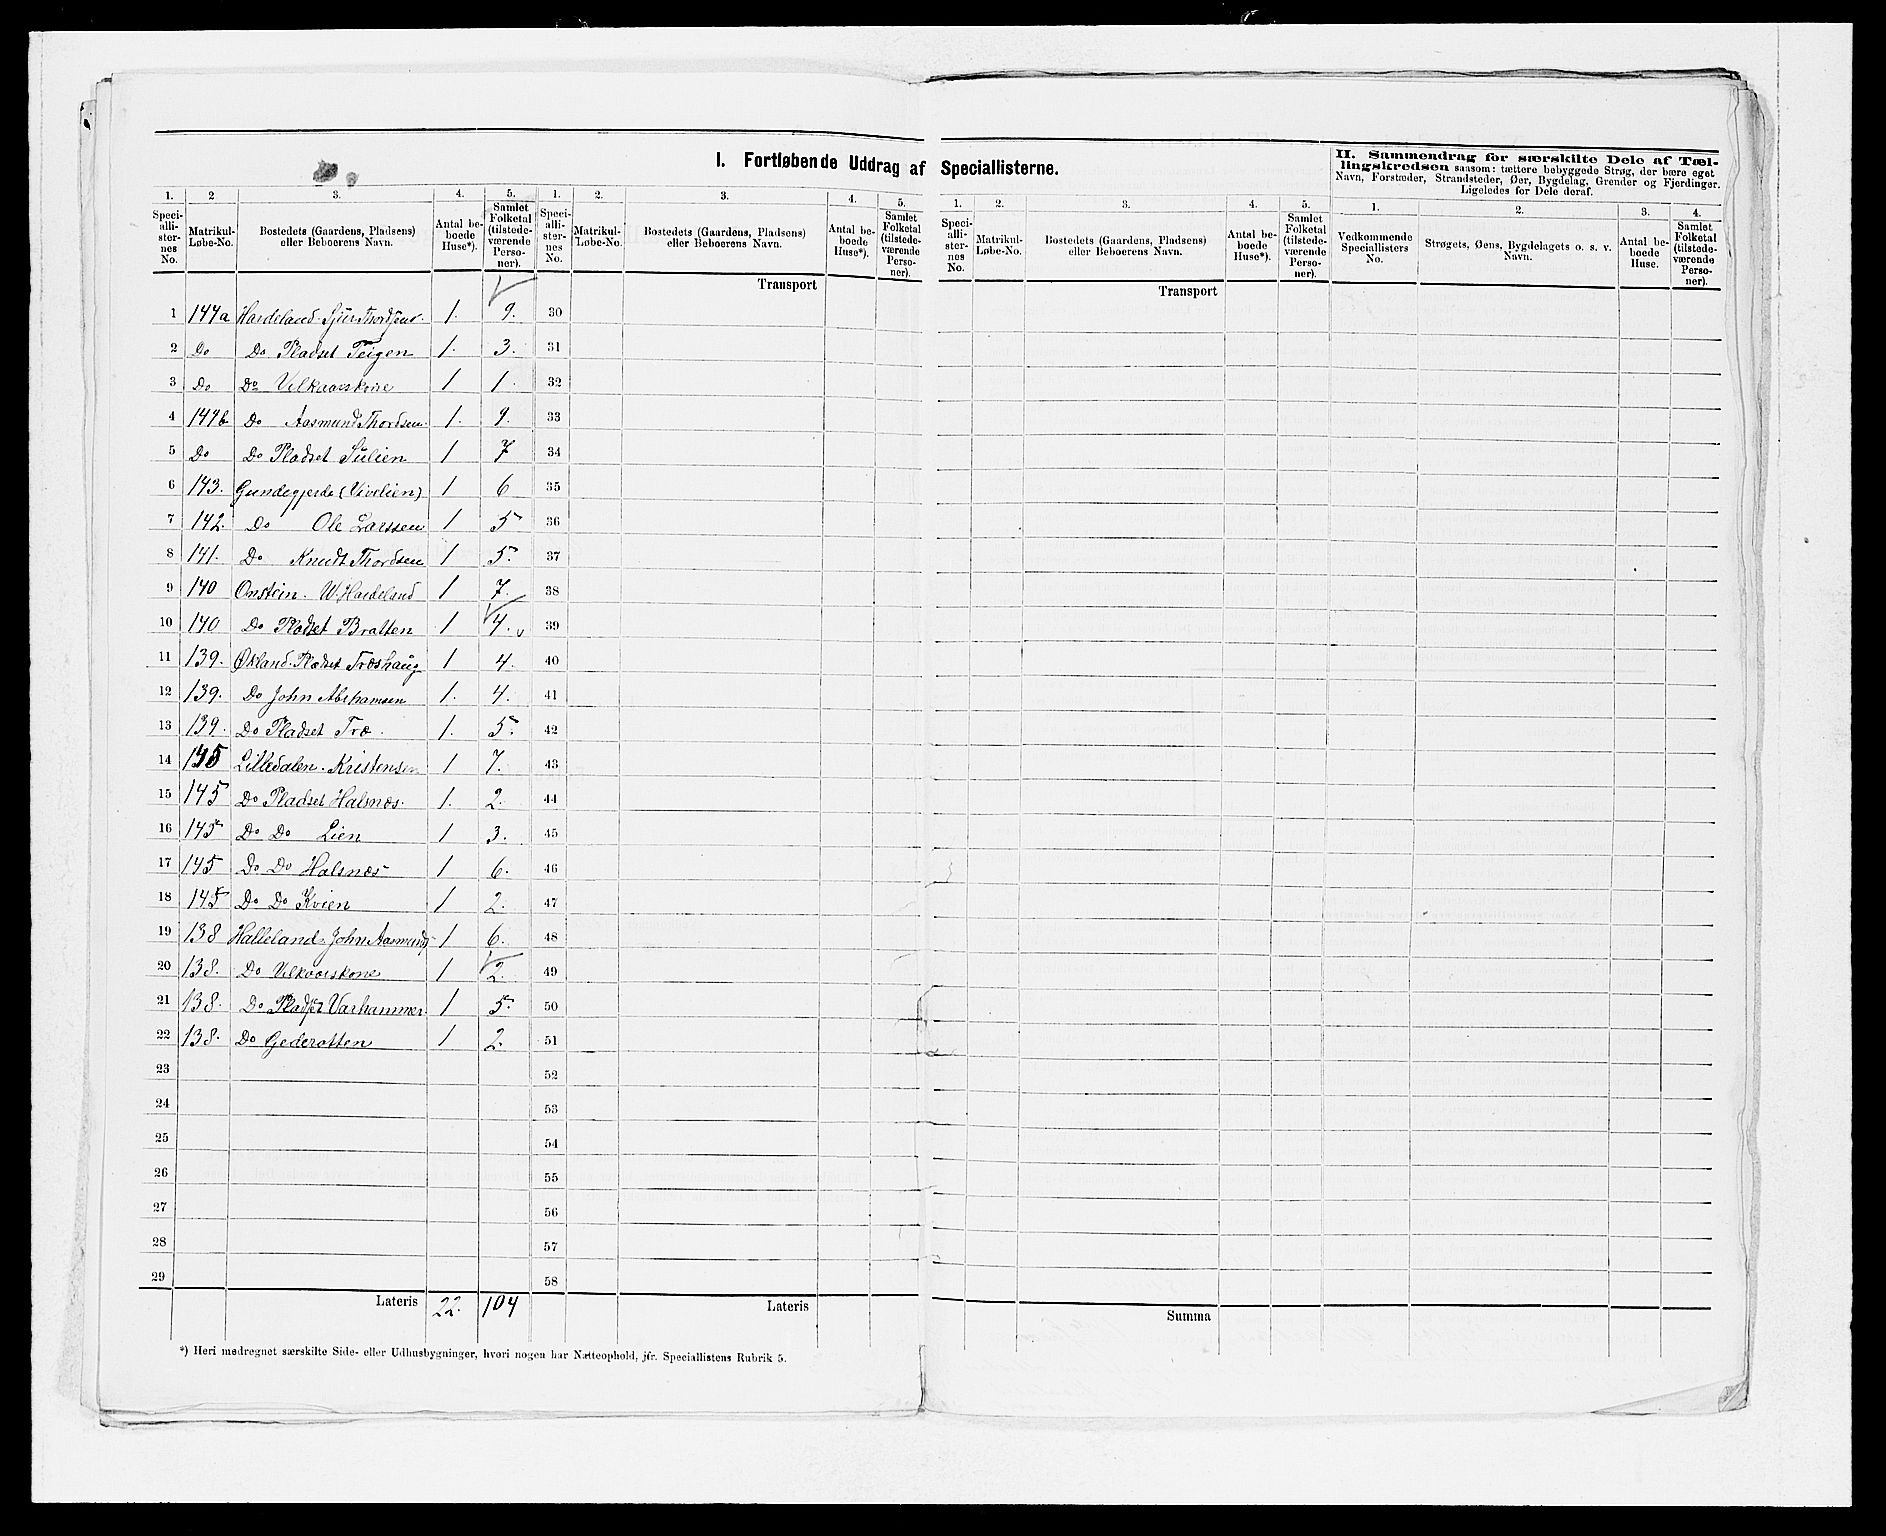 I. Fortløbende Uddrag af Speciallisterne.
II. Sammendrag for særskilte Dele af Tæl-
lingskredsen saasom: tættere bebyggede Strøg, der bære eget
Navn, Forstæder, Strandsteder, Øer, Bygdelag, Grender og Fjerdinger.
Ligeledes for Dele deraf.
1. 2 3. 4. 5. 1. 2. 3. 4. 5. 1. 2. 3. 4. 5. 1. 2. 3. 4.
Speci-alli-ster-nes No. Matrikul-Løbe-No. Bostedets (Gaardens, Pladsens) eller Beboerens Navn. Antal be-boede Huse*). Samlet Folketal (tilstede-værende Perso-ner).
Speci-alli-ster-nes No. Matrikul-Løbe-No. Bostedets (Gaardens, Pladsens) eller Beboerens Navn. Antal be-boede Huse*). Samlet Folketal (tilstede-værende Perso-ner).
Speci-alli-ster-nes No. Matrikul-Løbe-No. Bostedets (Gaardens, Pladsens) eller Beboerens Navn. Antal be-boede Huse*). Samlet Folketal (tilstede-værende Perso-ner).
Vedkommende Speciallisters No. Strøgets, Øens, Bygdelagets o. s. v. Navn. Antal be-boede Huse. Samlet Folketal (tilstede-værende Perso-ner).
Transport Transport
1 144a Hardeland. Sjur Thordsen. 1. 9. 30
2 Do Do Pladset Teigen 1. 3. 31
3 Do Do Vilkaarskone 1 1. 32
4 144b Do Aasmund Thordsen. 1. 9. 33
5 Do Do Pladset Sulien 1 7 34
6 143. Gundegjerde (Vivelien) 1 6 35
7 142. Do Ole Larssen 1 5 36
8 141. Do Knudt Thordsen 1 5. 37
9 140 Onstein. W. Hardeland 1 7. 38
10 140 Do Pladset Bratten 1 4. 39
11 139. Økland. Pladset Træshaug 1 4. 40
12 139. Do John Abrhamsen 1. 4. 41
13 139. Do Pladset Træ. 1. 5. 42
14 145 Lilledalen. Kristensen 1 7. 43
15 145 Do Pladset Halsnæs. 1. 2. 44
16 145 Do Do Lien 1 3. 45
17 145 Do Do Halsnæs 1 6. 46
18 145 Do Do Kvien 1 2. 47
19 138 Halleland. John Aasmunds 1 6. 48
20 138. Do Vilkaarskone 1 2. 49
21 138. Do Pladset Varhammer. 1 5. 50
22 138. Do Gederotten 1 2. 51
23 52
24 53
25 54
26 55
27 56
28 57
29 58
Lateris 22. 104 Lateris Summa
*) Heri medregnet særskilte Side- eller Udhusbygninger, hvori nogen har Natteophold, jfr. Speciallistens Rubrik 5.